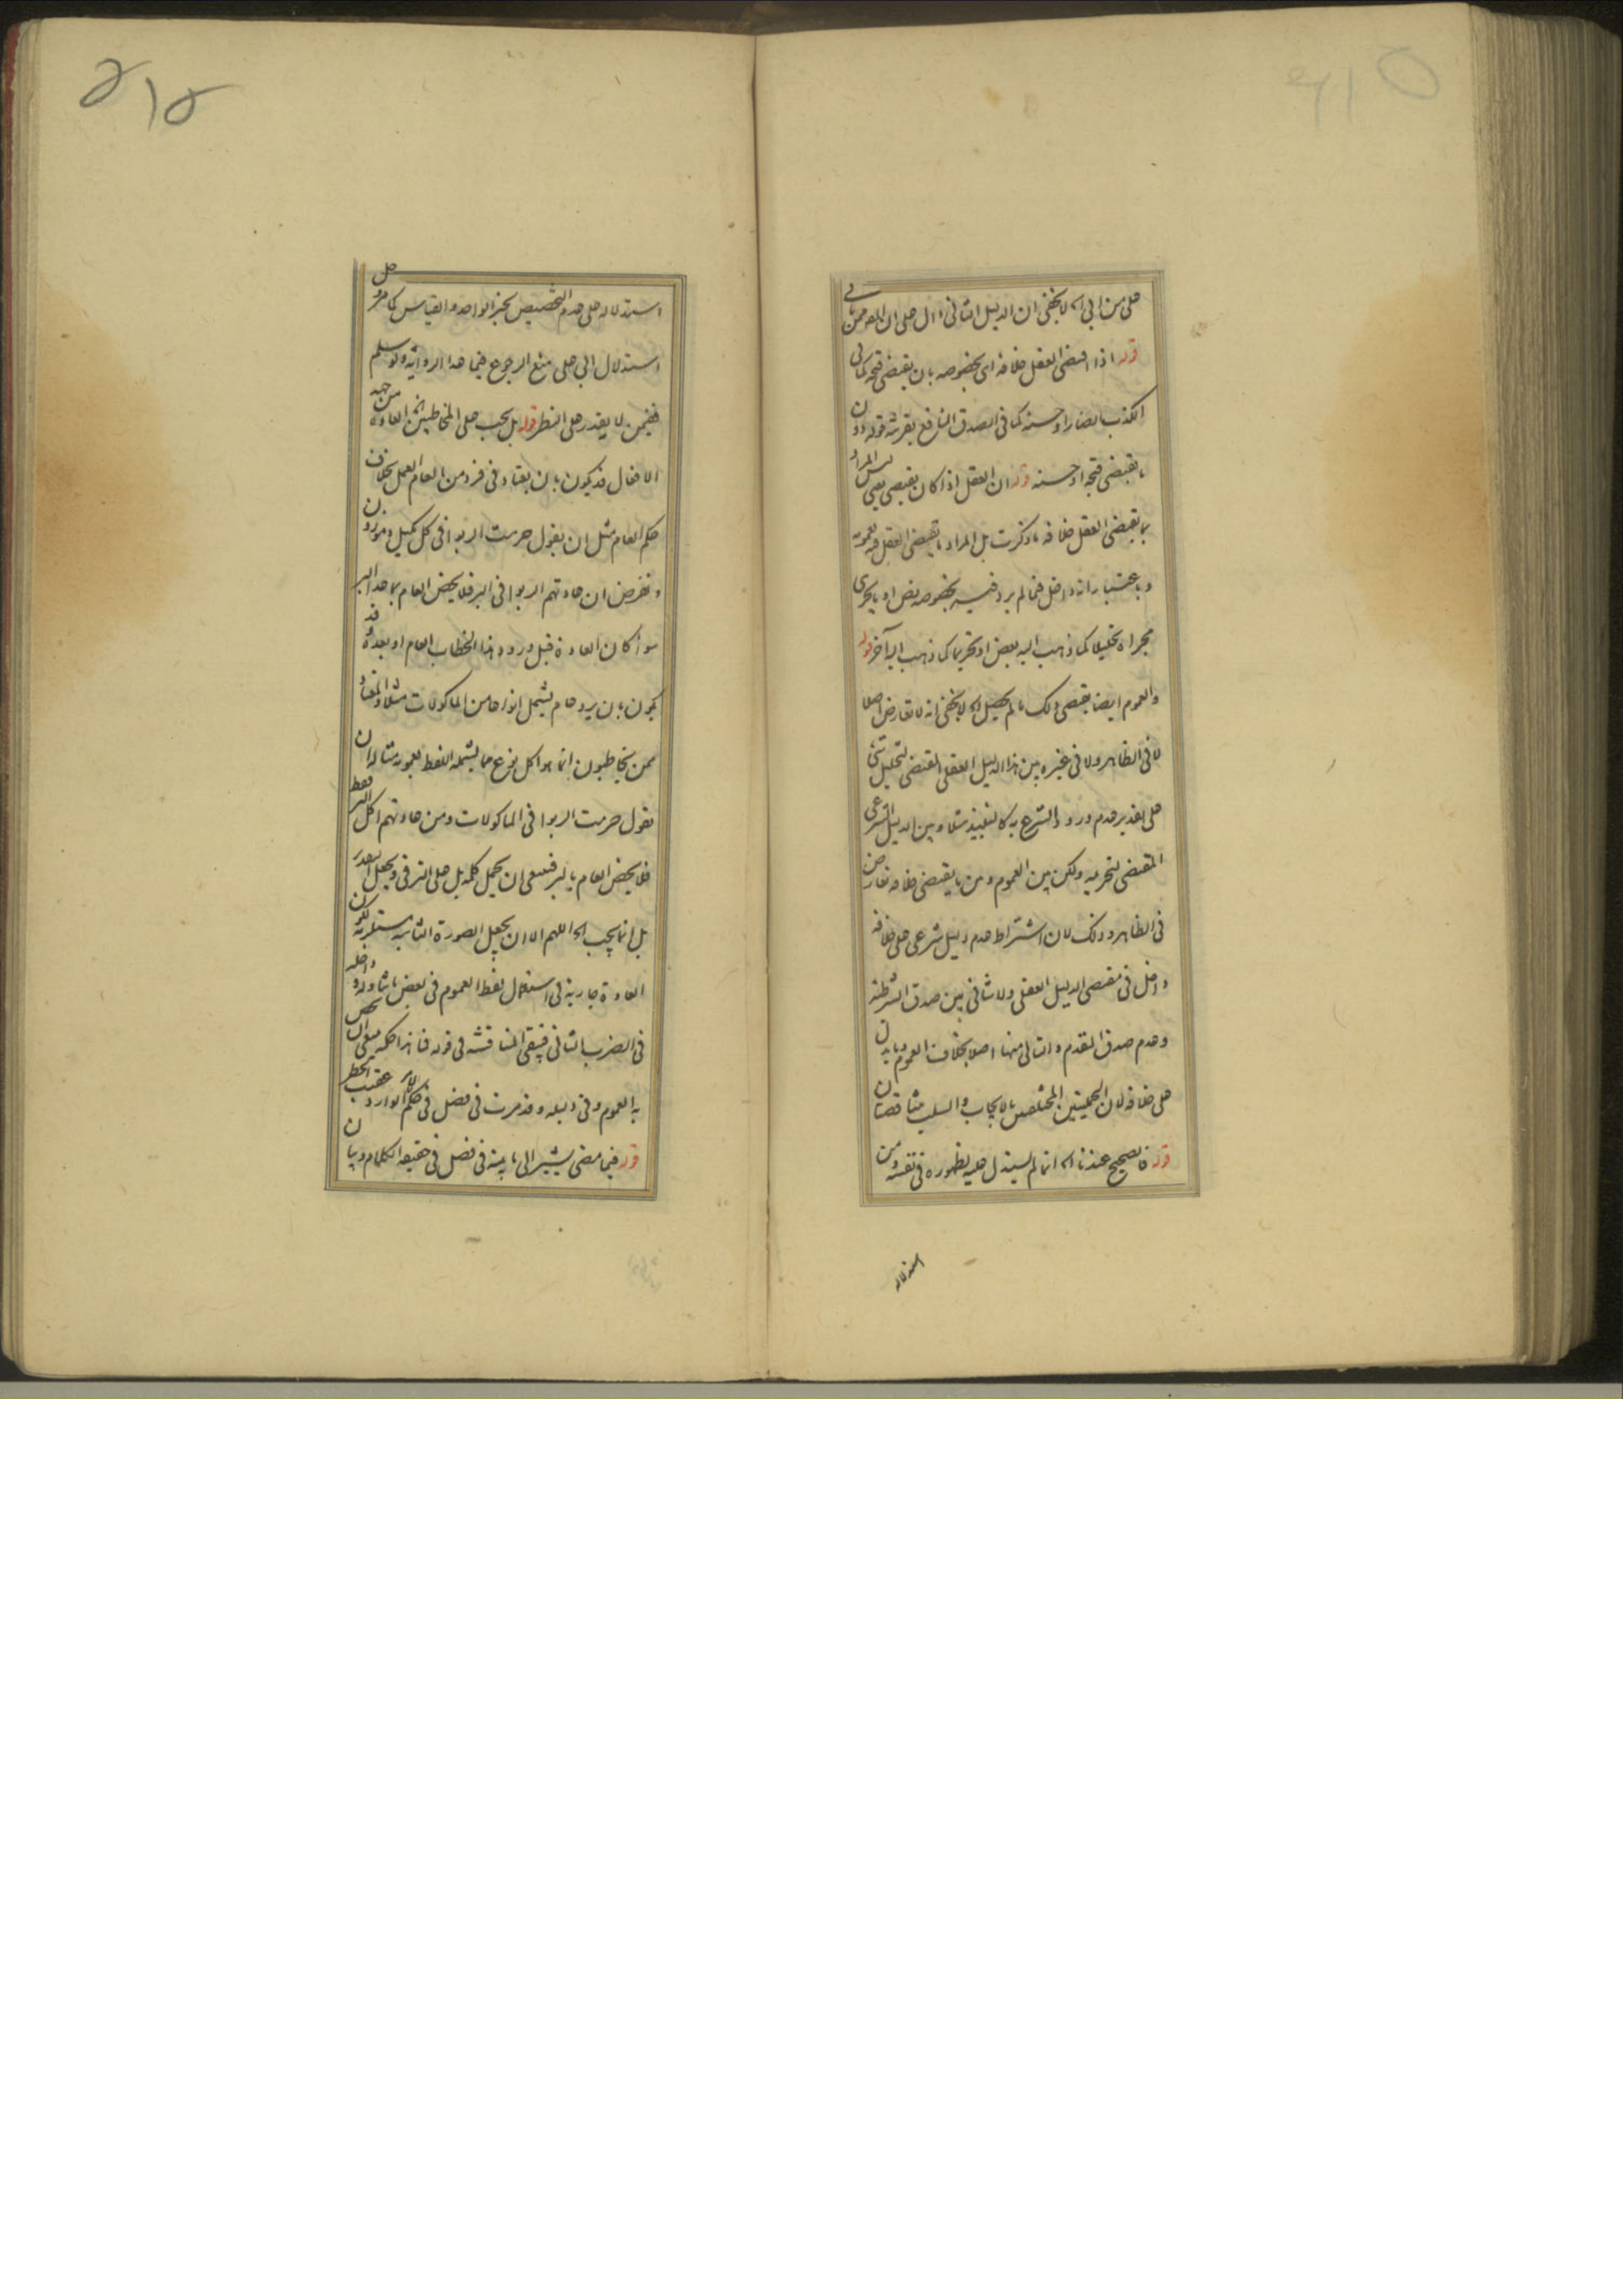 على من ابى اه لا يخفى ان الدليل الثانى دال على ان
قوله اذا اقتضى العقل خلافه اى بخصوصه بان يقتضى قبحه كما فى
الكذب الضار او حسنه كما فى الصدق النافع بقرينة قوله دون
ما يقتضى قبحه او حسنه قوله ان العقل اذا كان يقتضى يعنى ليس المراد
بما يقتضى العقل خلافه ما ذكرت بل المراد ما يقتضى العقل فيه بعمومه
وباعتبار انه داخل فيما لم يرد فيه بخصوصه نص او ما يجرى
مجراه تحليلا كما ذهب اليه بعض او تحريما كما ذهب اليه آخر قوله
والعموم ايضا يقتضى ذلك ما لم يحصل اه لا يخفى انه لا تعارض اصلا
لا فى الظاهر ولا فى غيره بين هذا الدليل العقلى المقتضى لتحليل شئ
على تقدير عدم ورود الشرع به كالنبيذ مثلا وبين الدليل الشرعى
المقتضى لتحريمه ولكن بين العموم وبين ما يقتضى خلافه تعارض
فى الظاهر وذلك لان اشتراط عدم دليل شرعى على خلافه
داخل فى مقتضى الدليل العقلى ولا تنافى بين صدق الشرطية
وعدم صدق المقدم والتالى منها اصلا بخلاف العموم وما يدل
على خلافه لان الحمليتين المختلفتين بالايجاب والسلب متناقضتان
قوله فالصحيح عندنا اه انما لم يستدل عليه لظهوره فى نفسه ومن
استدلاله
استدلاله على عدم التخصيص بخبر الواحد والقياس كما مر وحل
استدلال ابى على منع الرجوع فيما عدا الرواية ولو سلم
ففيمن لا يقدر على النظر قوله بل يجب على المخاطبين اه العادة من جهة
الافعال قد يكون بان يعتاد فى فرد من العام العمل بخلاف
حكم العام مثل ان يقول حرمت الربوا فى كل مكيل وموزون
ونفرض ان عادتهم الربوا فى البر فلا يخص العام بما عدا البر
سواء كان العادة قبل ورود هذا الخطاب العام او بعده وقد
يكون بان يرد عام يشمل انواعا من الماكولات مثلا والمعتاد
ممن يخاطبون انما هو اكل نوع مما يشمله اللفظ بعمومه مثاله ان
نقول حرمت الربوا فى الماكولات ومن عادتهم اكل البر فقط
فلا يخص العام بالبر فينبغى ان يحمل كلمة بل على الترقى ويجعل
بل انما يجب اه اللهم الا ان يجعل الصورة الثانية مستلزمة لكون
العادة جارية فى استعمال لفظ العموم فى بعض ما تناوله وداخله
فى الضرب الثانى فيبقى المناقشة فى قوله فما هذا حكمه ينبغى ان يخص
به العموم وفى دليله وقد مرت فى فصل فى حكم الامر الوارد عقيب الحظر
قوله فيما مضى يشير الى ما بينه فى فصل فى حقيقة الكلام وبيان